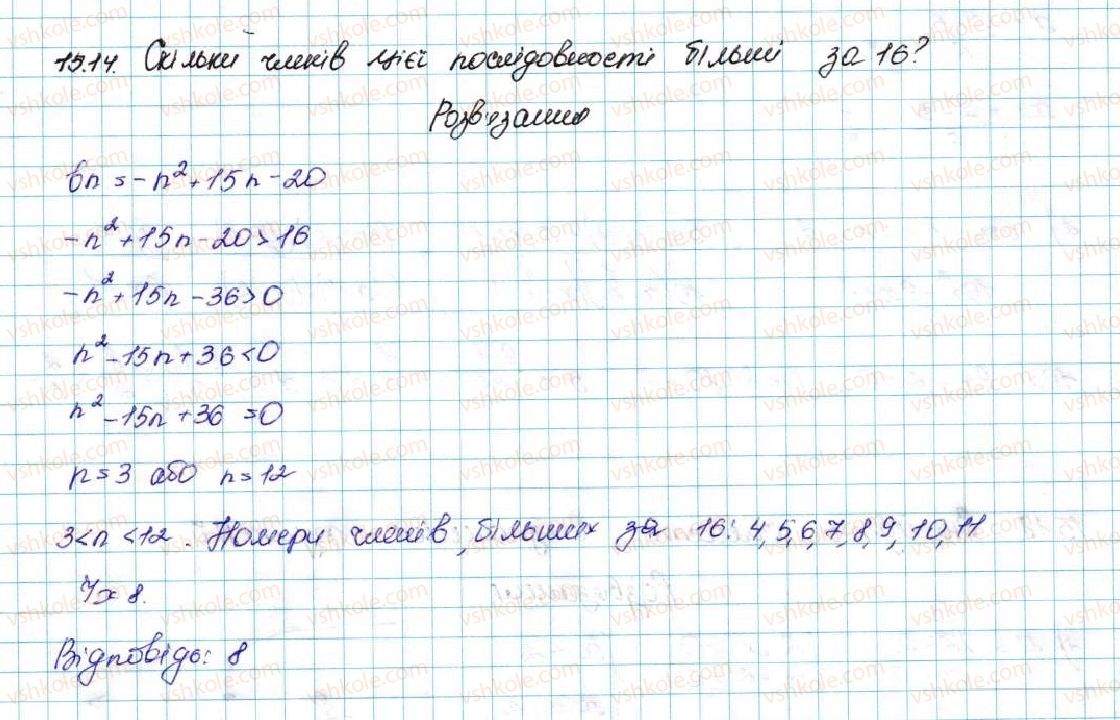 15.14. Скільки членів цієї послідовності більші за 16?
Розв'язання
bn = -n²+15n-20
-n²+15n-20>16
-n²+15n-36>0
n²-15n+36<0
n²-15n+36=0
n=3 або n=12
3<n<12. Номери членів, більших за 16: 4,5,6,7,8,9,10,11
Їх 8.
Відповідь: 8